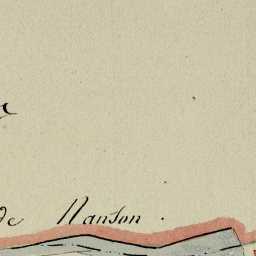 de Nanson .